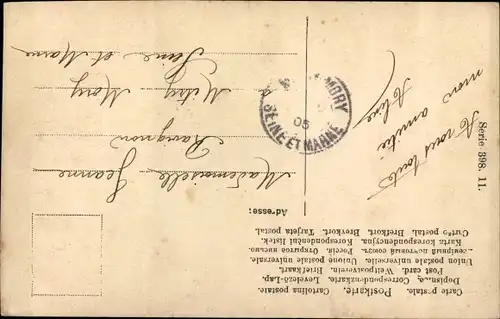 Carte postale. Postkarte. Cartolina postale.
Dopisnice. Correspondenzkarte. Levelező-Lap.
Post card. Weltpostverein. Briefkaart.
Union postale universelle. Unione postale universale.
Открытое письмо.
Karta korespondencyjna. Korespondenční lístek.
postal. Brefkort. Brevkort. Tarjeta postal.
Adresse:
Mademoiselle Jeanne
Rongnon
à Mitry Mory
Seine et Marne
MORY
05
SEINE ET MARNE
A vous toute
mon amitié
Aline
Serie 398. 11.